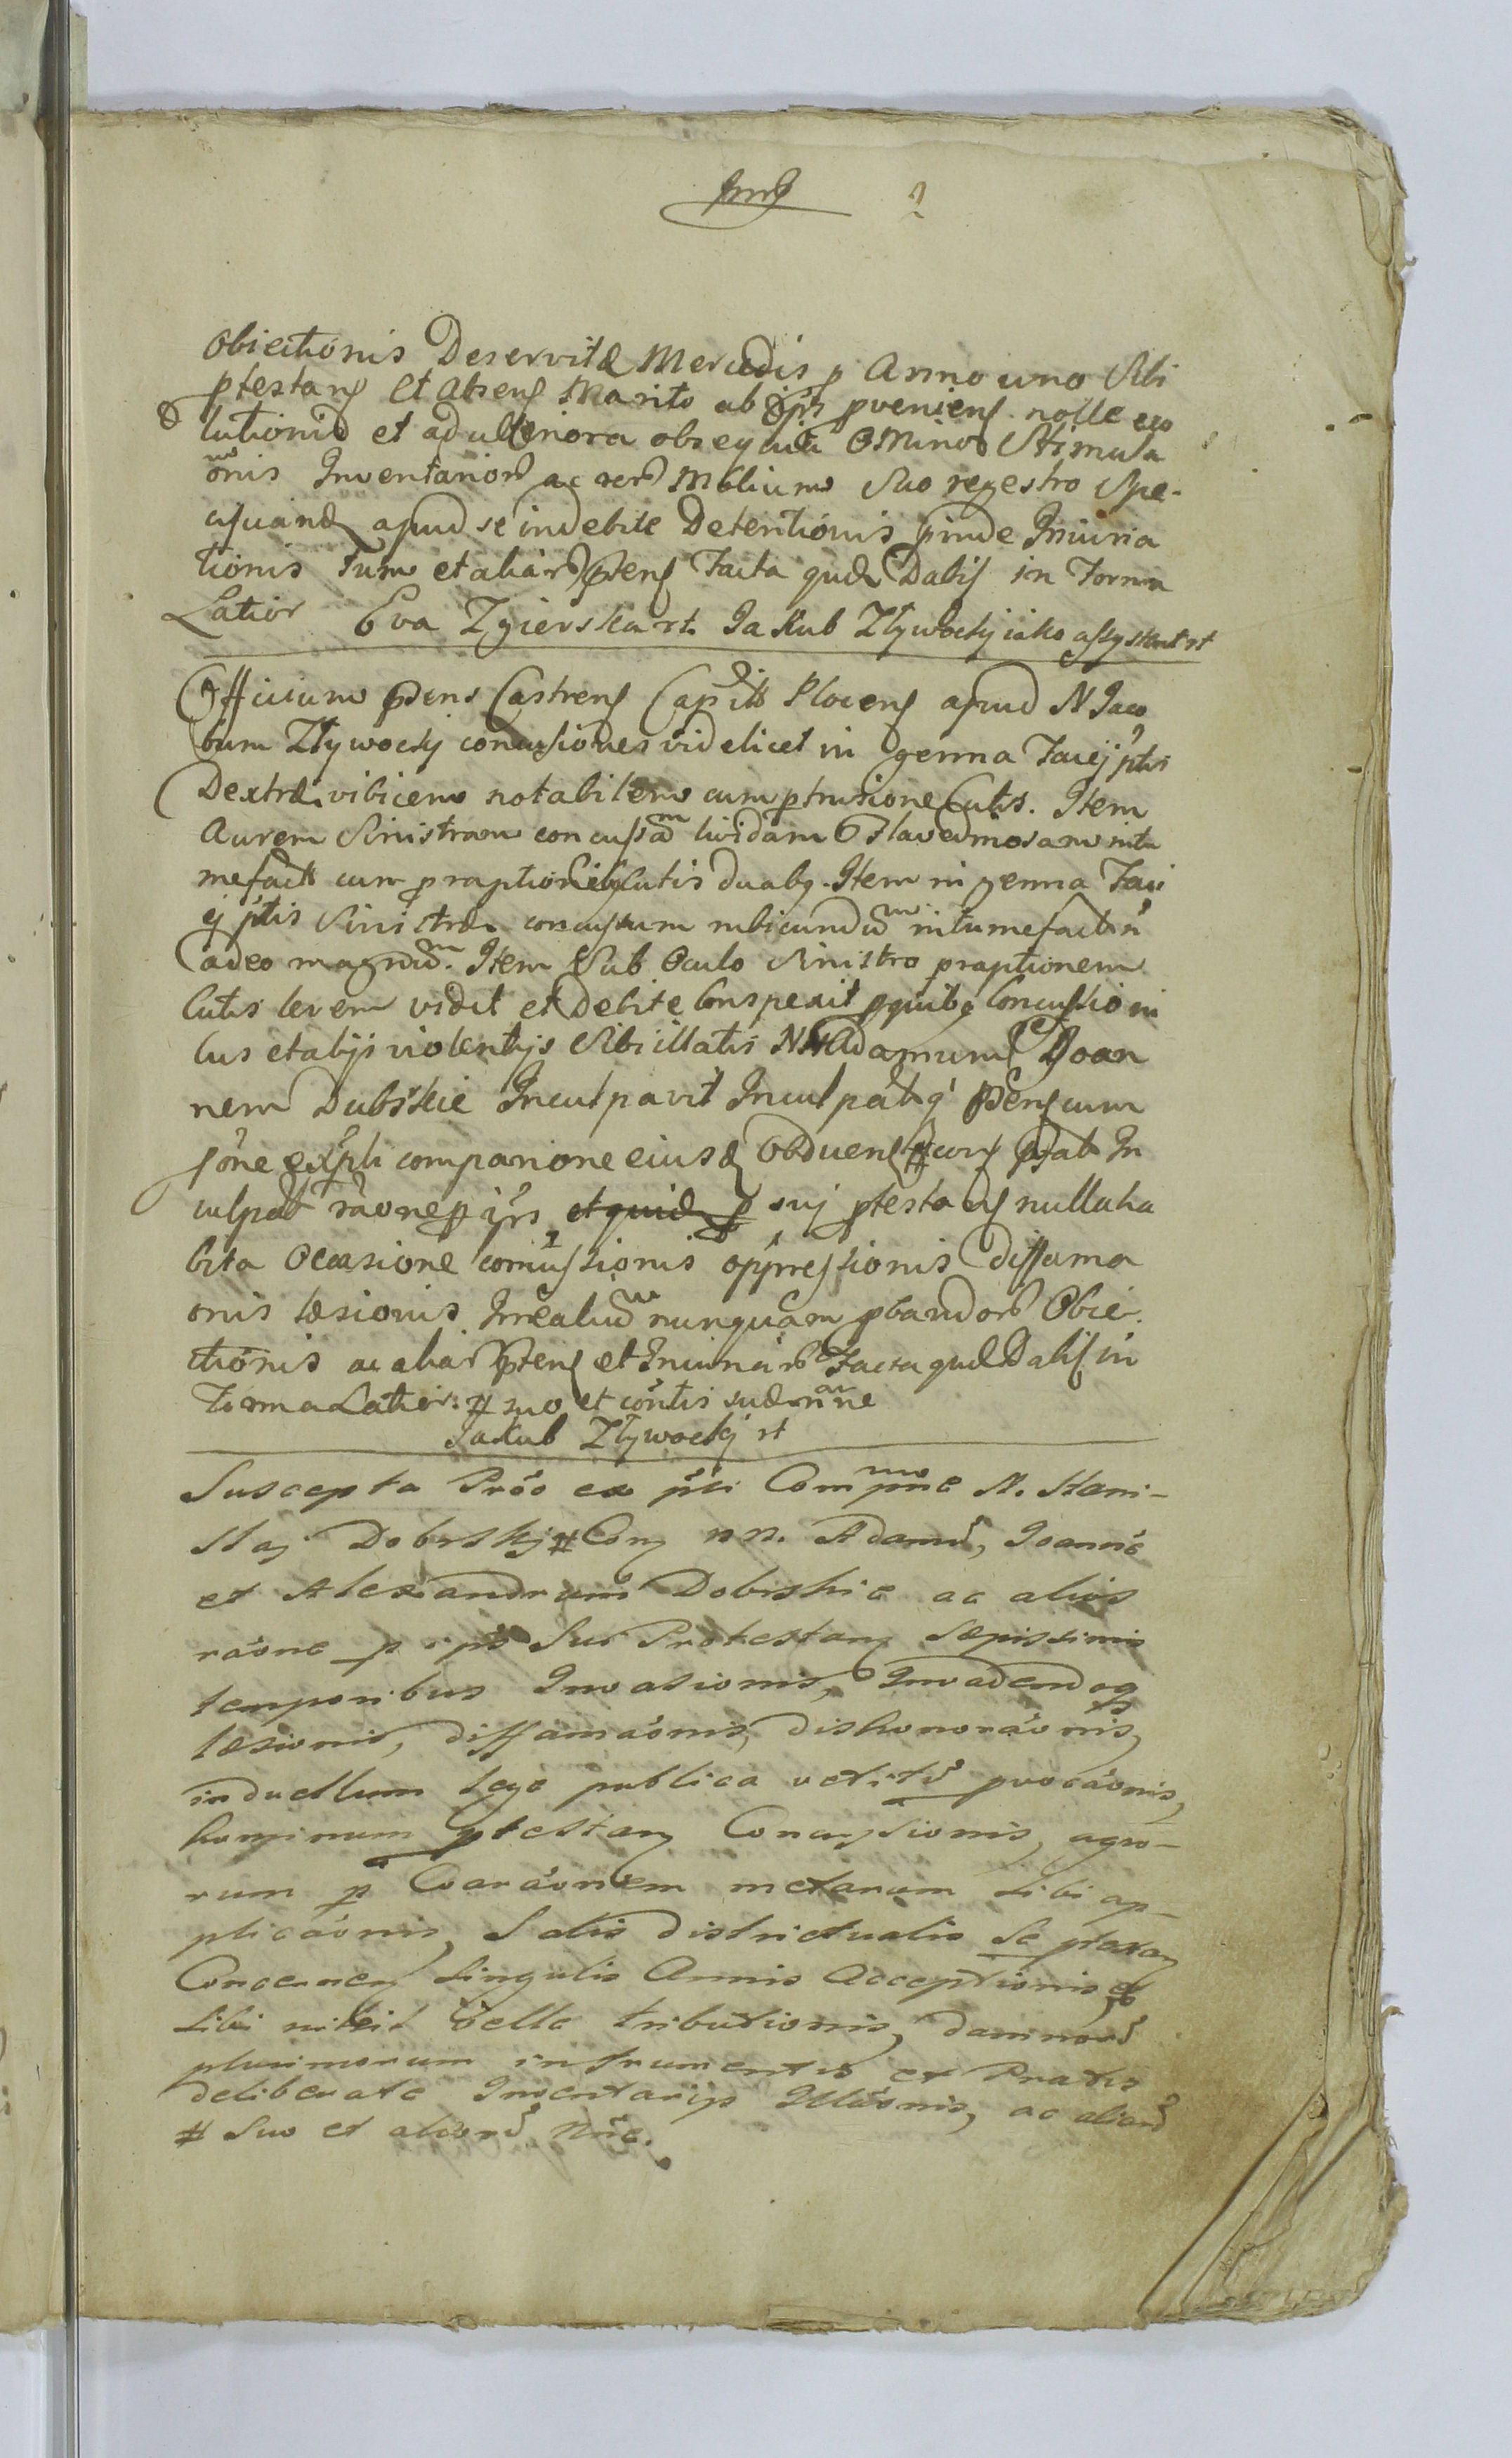 2
Obiectionis Deservitæ Mercedis p Anno uno Sibi
ptestanȷ et Absenȷ Marito ab ipis pvenienȷ nolle exo
lutionis et ad ulteriora obsequia Stimula
onis Inventarior ac rer Mobilium Suo regestro Spe-
apud se indebite Detentionis Iniuria
tionis tum et aliar Facta quæ Dabis in Forma
Latior Eva Zgierska rt. Jakub Złÿwockÿ iako assÿstent rt
Officium pdens Castrens Capitt Plocens apud N Jaco
bum Złÿwockÿ concussiones videlicet in genna Faciej ptis
Dextræ vibicem notabilem cum ptrusione Cutis. Item
Aurem Sinistram concussam lividam intu
mefact cum praptionibȷ Cutis duabȷ. Item in genna Faci
ej ptis Sinistræ concussum rubicundum intumefactu
adeo magnum. Item Sub Oculo Sinistro praptionem
Cutis levem vidit et debite Conspexit p quibȷ Concussioni
bus et alijs violentijs Sibi illatis NN Adamum Joan
nem Dubskie Inculpavit Inculpatȷ Pdens cum
pone ex pti comparione eiusd # pfat In
culpat raone p ips et quidem p suj ptestaȷ nulla ha
bita Occasione comissionis oppressionis diffama
onis læsionis nunquam pbandor Obie-
ctionis ac aliar et Iniuriar Facta quæ Dabis in
Forma Latior: # suo et contis suæ nne
Jakub Złÿwockÿ rt
Suscepta Proo ex pti Compne N. Stani-
slaj Dobrskÿ # Con nn. Adamu, Joanne
et Alexandrum Dobrskie ac alios
raone p ips Sui Protestanȷ Sæpissimis
temporibus Invasionis, Invadendoqȷ
læsionis, diffamaonis, dishonoraonis,
in duellum lege publica vetitu pvocaonis,
hominum ptestanȷ Concussionis, agro-
rum p metarum sibi ap-
plicaonis, Salis districtualis Se ptestanȷ
Concernenȷ Singulis Annis Acceptionis et
sibi nihil velle tributionis, damnoru
plurimorum in frumentis et Pratis
deliberate Inventarijs Illaonis, ac aliaru
# Suo et alioru nne.